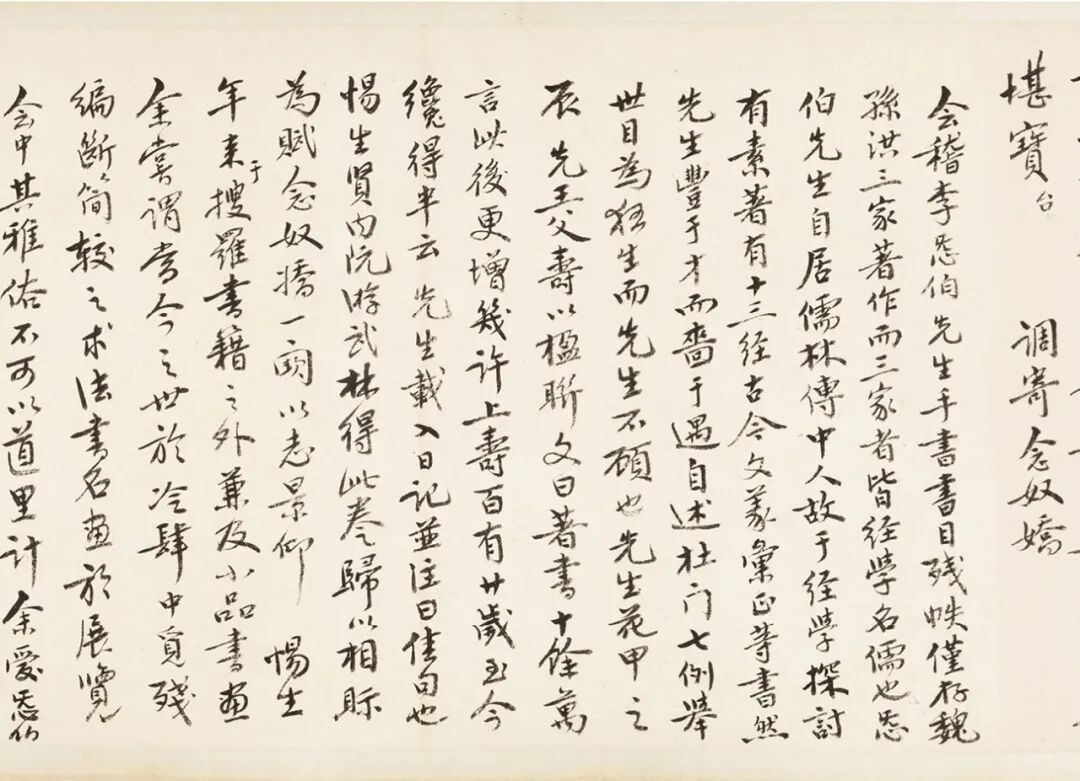 堪寶台 調寄念奴嬌
會稽李悉伯先生手書書目殘帙僅存魏
孫洪三家著作而三家者皆经學名儒也悉
伯先生自居儒林傳中人故于经學探討
有素著有十三经古今文義彙正等書然
先生豐于才而嗇于遇自述杜门七例舉
世目為狂生而先生不顧也先生花甲之
辰先王父壽以楹聯文曰著書十餘萬
言此後更增幾許上壽百有廿歲至今
纔得半云先生載入日記並注曰佳句也
惕生賢内阮游武林得此卷歸以相眎
為賦念奴嬌一闋以志景仰 惕生
年来于搜羅書籍之外兼及小品書畫
余嘗謂當今之世於冷肆中覓殘
編斷简較之求法書名畫於展覽
会中其雅俗不可以道里計余愛悉伯